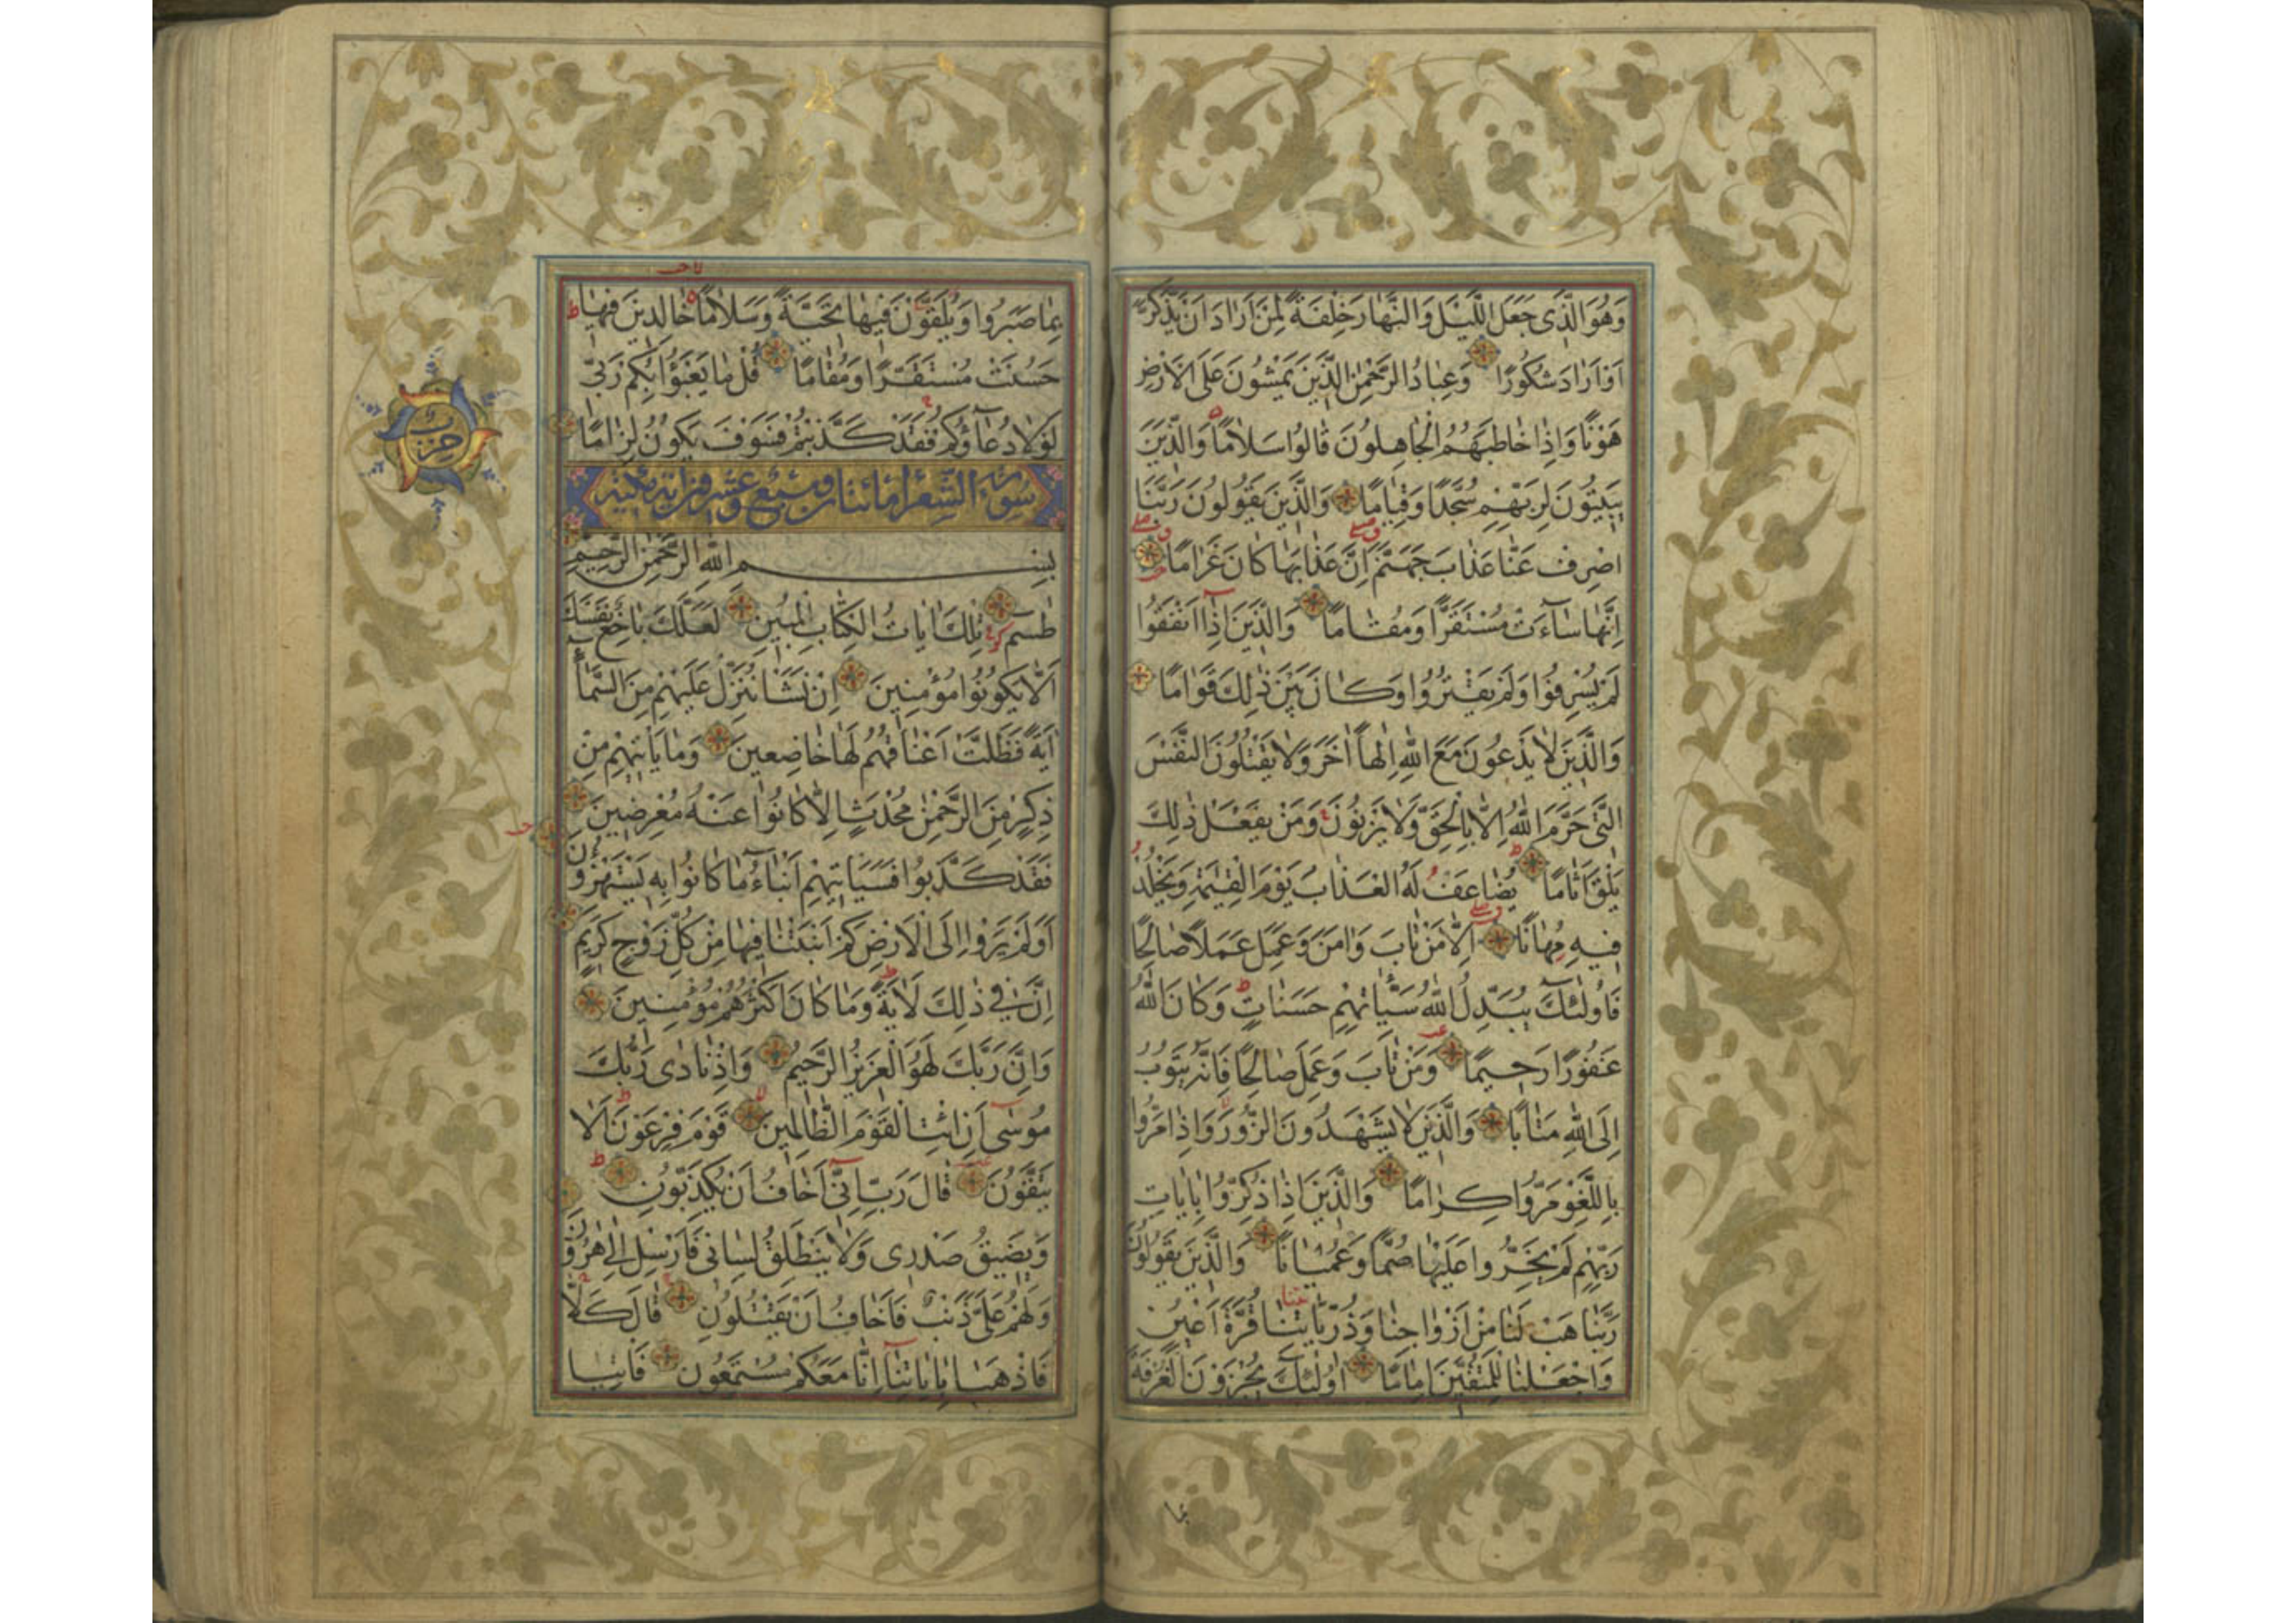 وَهُوَ الَّذِی جَعَلَ اللَّیْلَ وَالنَّهَارَ خِلْفَةً لِمَنْ اَرَادَ اَنْ یَذَّکَّرَ
اَوْ اَرَادَ شُکُورًا وَعِبَادُ الرَّحْمٰنِ الَّذِینَ یَمْشُونَ عَلَی الْاَرْضِ
هَوْنًا وَاِذَا خَاطَبَهُمُ الْجَاهِلُونَ قَالُوا سَلَامًا وَالَّذِینَ
یَبِیتُونَ لِرَبِّهِمْ سُجَّدًا وَقِیَامًا وَالَّذِینَ یَقُولُونَ رَبَّنَا
اصْرِفْ عَنَّا عَذَابَ جَهَنَّمَ اِنَّ عَذَابَهَا کَانَ غَرَامًا
اِنَّهَا سَاءَتْ مُسْتَقَرًّا وَمُقَامًا وَالَّذِینَ اِذَا اَنْفَقُوا
لَمْ یُسْرِفُوا وَلَمْ یَقْتُرُوا وَکَانَ بَیْنَ ذٰلِکَ قَوَامًا
وَالَّذِینَ لَا یَدْعُونَ مَعَ اللّٰهِ اِلٰهًا اٰخَرَ وَلَا یَقْتُلُونَ النَّفْسَ
الَّتِی حَرَّمَ اللّٰهُ اِلَّا بِالْحَقِّ وَلَا یَزْنُونَ وَمَنْ یَفْعَلْ ذٰلِکَ
یَلْقَ اَثَامًا یُضَاعَفْ لَهُ الْعَذَابُ یَوْمَ الْقِیٰمَةِ وَیَخْلُدْ
فِیهِ مُهَانًا اِلَّا مَنْ تَابَ وَاٰمَنَ وَعَمِلَ عَمَلًا صَالِحًا
فَاُولٰئِکَ یُبَدِّلُ اللّٰهُ سَیِّاٰتِهِمْ حَسَنَاتٍ وَکَانَ اللّٰهُ
غَفُورًا رَحِیمًا وَمَنْ تَابَ وَعَمِلَ صَالِحًا فَاِنَّهُ یَتُوبُ
اِلَی اللّٰهِ مَتَابًا وَالَّذِینَ لَا یَشْهَدُونَ الزُّورَ وَاِذَا مَرُّوا
بِاللَّغْوِ مَرُّوا کِرَامًا وَالَّذِینَ اِذَا ذُکِّرُوا بِاٰیَاتِ
رَبِّهِمْ لَمْ یَخِرُّوا عَلَیْهَا صُمًّا وَعُمْیَانًا وَالَّذِینَ یَقُولُونَ
رَبَّنَا هَبْ لَنَا مِنْ اَزْوَاجِنَا وَذُرِّیَّاتِنَا قُرَّةَ اَعْیُنٍ
وَاجْعَلْنَا لِلْمُتَّقِینَ اِمَامًا اُولٰئِکَ یُجْزَوْنَ الْغُرْفَةَ
بِمَا صَبَرُوا وَیُلَقَّوْنَ فِیهَا تَحِیَّةً وَسَلَامًا خَالِدِینَ فِیهَا
حَسُنَتْ مُسْتَقَرًّا وَمُقَامًا قُلْ مَا یَعْبَؤُا بِکُمْ رَبِّی
لَوْلَا دُعَآؤُکُمْ فَقَدْ کَذَّبْتُمْ فَسَوْفَ یَکُونُ لِزَامًا
حزب
سورة الشعرا مائتان و سبع و عشرون آیة مکیة
بِسْمِ اللّٰهِ الرَّحْمٰنِ الرَّحِیمِ
طسم تِلْکَ اٰیَاتُ الْکِتَابِ الْمُبِینِ لَعَلَّکَ بَاخِعٌ نَفْسَکَ
اَلَّا یَکُونُوا مُؤْمِنِینَ اِنْ نَشَأْ نُنَزِّلْ عَلَیْهِمْ مِنَ السَّمَآءِ
اٰیَةً فَظَلَّتْ اَعْنَاقُهُمْ لَهَا خَاضِعِینَ وَمَا یَأْتِیهِمْ مِنْ
ذِکْرٍ مِنَ الرَّحْمٰنِ مُحْدَثٍ اِلَّا کَانُوا عَنْهُ مُعْرِضِینَ
فَقَدْ کَذَّبُوا فَسَیَأْتِیهِمْ اَنْبَاءُ مَا کَانُوا بِهِ یَسْتَهْزِؤُنَ
اَوَلَمْ یَرَوْا اِلَی الْاَرْضِ کَمْ اَنْبَتْنَا فِیهَا مِنْ کُلِّ زَوْجٍ کَرِیمٍ
اِنَّ فِی ذٰلِکَ لَاٰیَةً وَمَا کَانَ اَکْثَرُهُمْ مُؤْمِنِینَ
وَاِنَّ رَبَّکَ لَهُوَ الْعَزِیزُ الرَّحِیمُ وَاِذْ نَادٰی رَبُّکَ
مُوسٰی اَنِ ائْتِ الْقَوْمَ الظَّالِمِینَ قَوْمَ فِرْعَوْنَ اَلَا
یَتَّقُونَ قَالَ رَبِّ اِنِّی اَخَافُ اَنْ یُکَذِّبُونِ
وَیَضِیقُ صَدْرِی وَلَا یَنْطَلِقُ لِسَانِی فَاَرْسِلْ اِلٰی هٰرُونَ
وَلَهُمْ عَلَیَّ ذَنْبٌ فَاَخَافُ اَنْ یَقْتُلُونِ قَالَ کَلَّا
فَاذْهَبَا بِاٰیَاتِنَا اِنَّا مَعَکُمْ مُسْتَمِعُونَ فَأْتِیَا